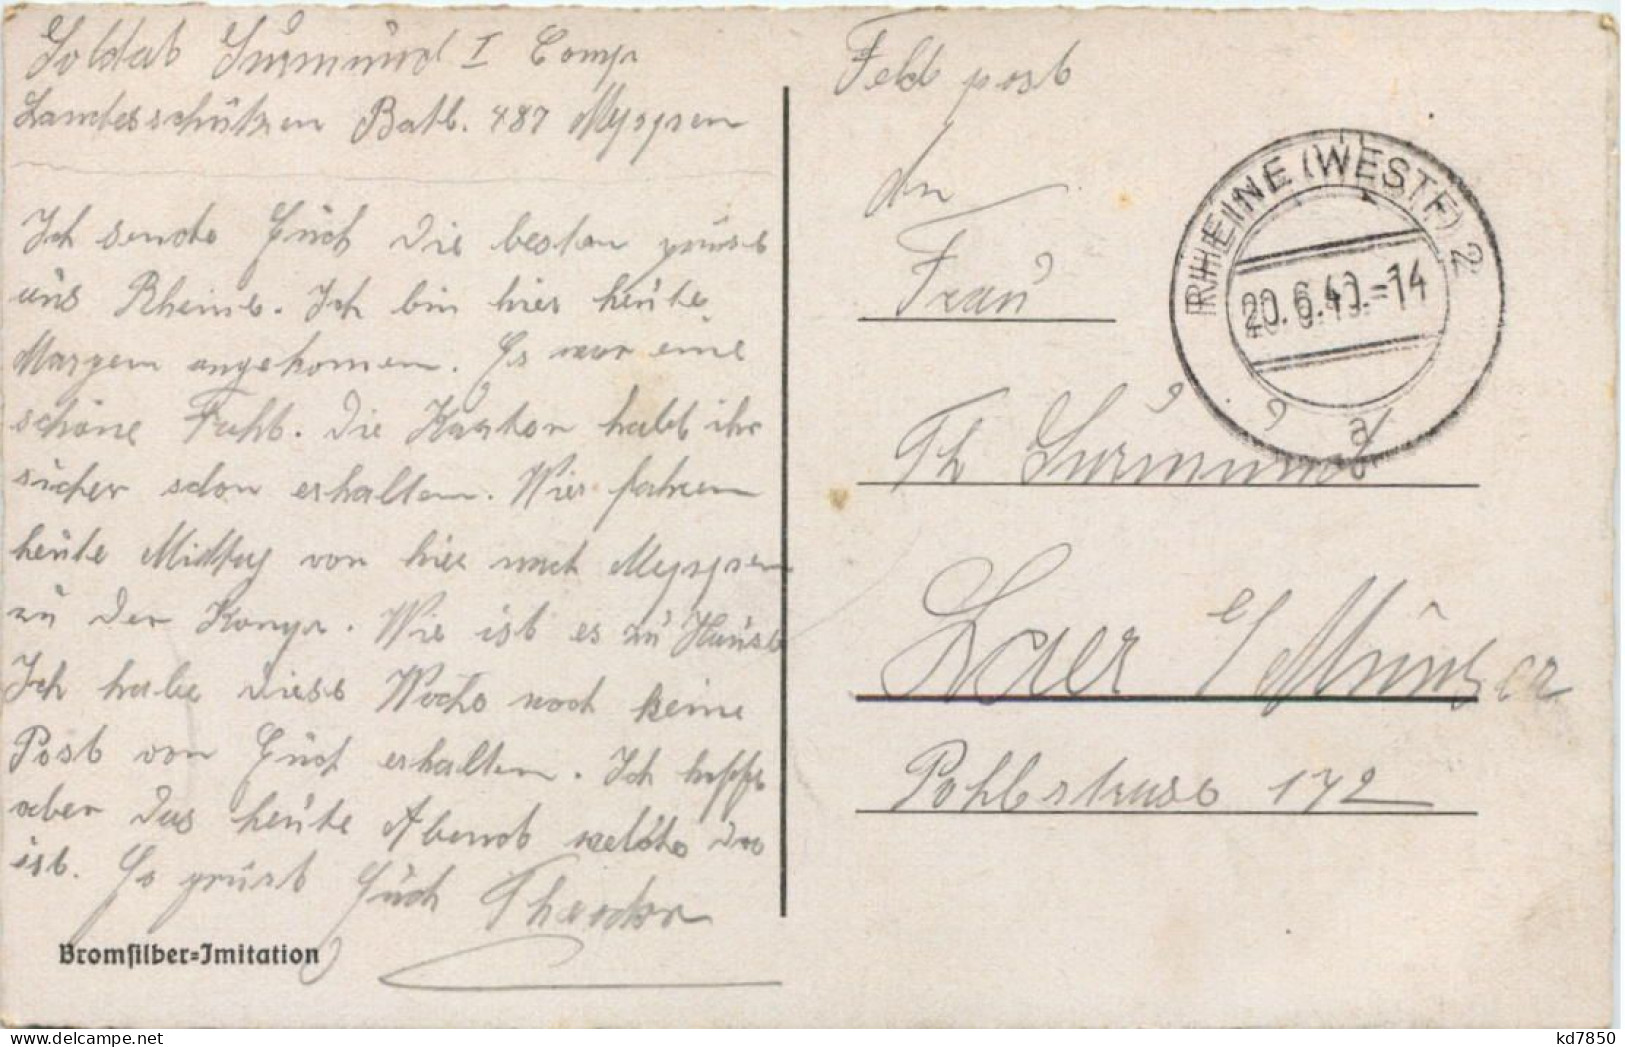 Soldat Surmund I Comp
Landesschützen Batl. 487 Meppen
Ich sende Euch die besten grüse
aus Rheine. Ich bin hier heute
Morgen angekommen. Es war eine
schöne Fahrt. Die Karton habt ihr
sicher schon erhalten. Wier fahren
heute Mittag von hier nach Meppen
zu der Komp. Wie ist es zu Hause
Ich habe diese Woche noch keine
Post von Euch erhalten. Ich hoffe
aber das heute Abend welche da
ist. Es grüst Euch Theodor
Bromsilber=Imitation
Feldpost
An
Frau
Th Surmund
Laer b/Münster
Pohlstrase 172
RHEINE (WESTF) 2
20.6.40.-14
a
kd7850